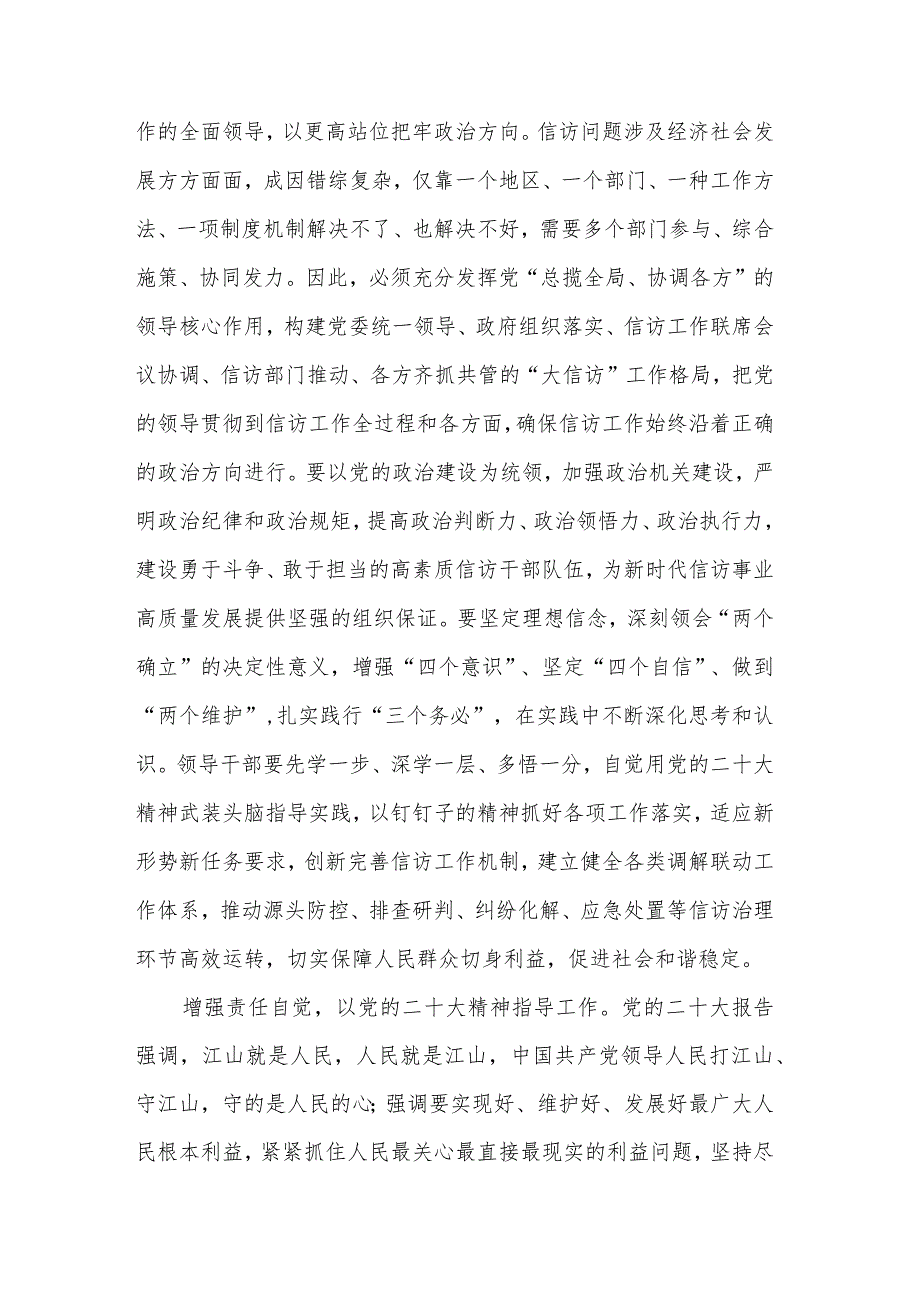 作的全面领导，以更高站位把牢政治方向。信访问题涉及经济社会发
展方方面面，成因错综复杂，仅靠一个地区、一个部门、一种工作方
法、一项制度机制解决不了、也解决不好，需要多个部门参与、综合
施策、协同发力。因此，必须充分发挥党“总揽全局、协调各方”的
领导核心作用，构建党委统一领导、政府组织落实、信访工作联席会
议协调、信访部门推动、各方齐抓共管的“大信访”工作格局，把党
的领导贯彻到信访工作全过程和各方面，确保信访工作始终沿着正确
的政治方向进行。要以党的政治建设为统领，加强政治机关建设，严
明政治纪律和政治规矩，提高政治判断力、政治领悟力、政治执行力，
建设勇于斗争、敢于担当的高素质信访干部队伍，为新时代信访事业
高质量发展提供坚强的组织保证。要坚定理想信念，深刻领会“两个
确立”的决定性意义，增强“四个意识”、坚定“四个自信”、做到
“两个维护”,扎实践行“三个务必”，在实践中不断深化思考和认
识。领导干部要先学一步、深学一层、多悟一分，自觉用党的二十大
精神武装头脑指导实践，以钉钉子的精神抓好各项工作落实，适应新
形势新任务要求，创新完善信访工作机制，建立健全各类调解联动工
作体系，推动源头防控、排查研判、纠纷化解、应急处置等信访治理
环节高效运转，切实保障人民群众切身利益，促进社会和谐稳定。
增强责任自觉，以党的二十大精神指导工作。党的二十大报告
强调，江山就是人民，人民就是江山，中国共产党领导人民打江山、
守江山，守的是人民的心；强调要实现好、维护好、发展好最广大人
民根本利益，紧紧抓住人民最关心最直接最现实的利益问题，坚持尽